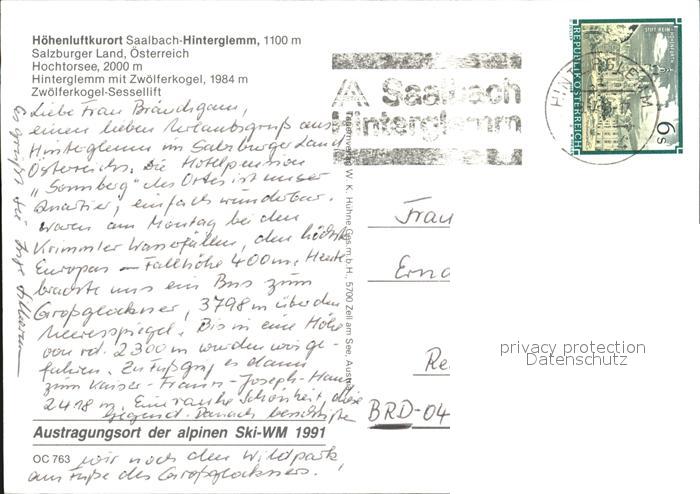 Höhenluftkurort Saalbach-Hinterglemm, 1100 m
Salzburger Land, Österreich
Hochtorsee, 2000 m
Hinterglemm mit Zwölferkogel, 1984 m
Zwölferkogel-Sessellift
Liebe Frau
einen lieben Urlaubsgruß aus
Hinterglemm im Salzburger Land
Österreichs. Die Hotelpension
"Sonnberg" des Ortes ist unser
Quartier, einfach wunderbar.
Waren am Montag bei den
Krimmler Wasserfällen, den höchsten
Europas - Fallhöhe 400 m. Heute
brachte uns ein Bus zum
Großglockner, 3798 m über dem
Meeresspiegel. Bis in eine Höhe
von rd. 2300 m wurden wir ge-
fahren. Zu Fuß ging es dann
zum Kaiser-Franz-Joseph-Haus
2418 m. Eine rauhe Schönheit, diese
Gegend. Danach besichtigten
Austragungsort der alpinen Ski-WM 1991
OC 763
wir noch den Wildpark
am Fuße des Großglockners.
Es grüßt Sie
W. K. Hühne Ges.m.b.H., 5700 Zell am See, Austria
Saalbach
Hinterglemm
HINTERGLEMM
REPUBLIK ÖSTERREICH
STIFT REIN-
HOHENFURTH
6 S
Frau
Erna
Re
BRD-04
privacy protection
Datenschutz